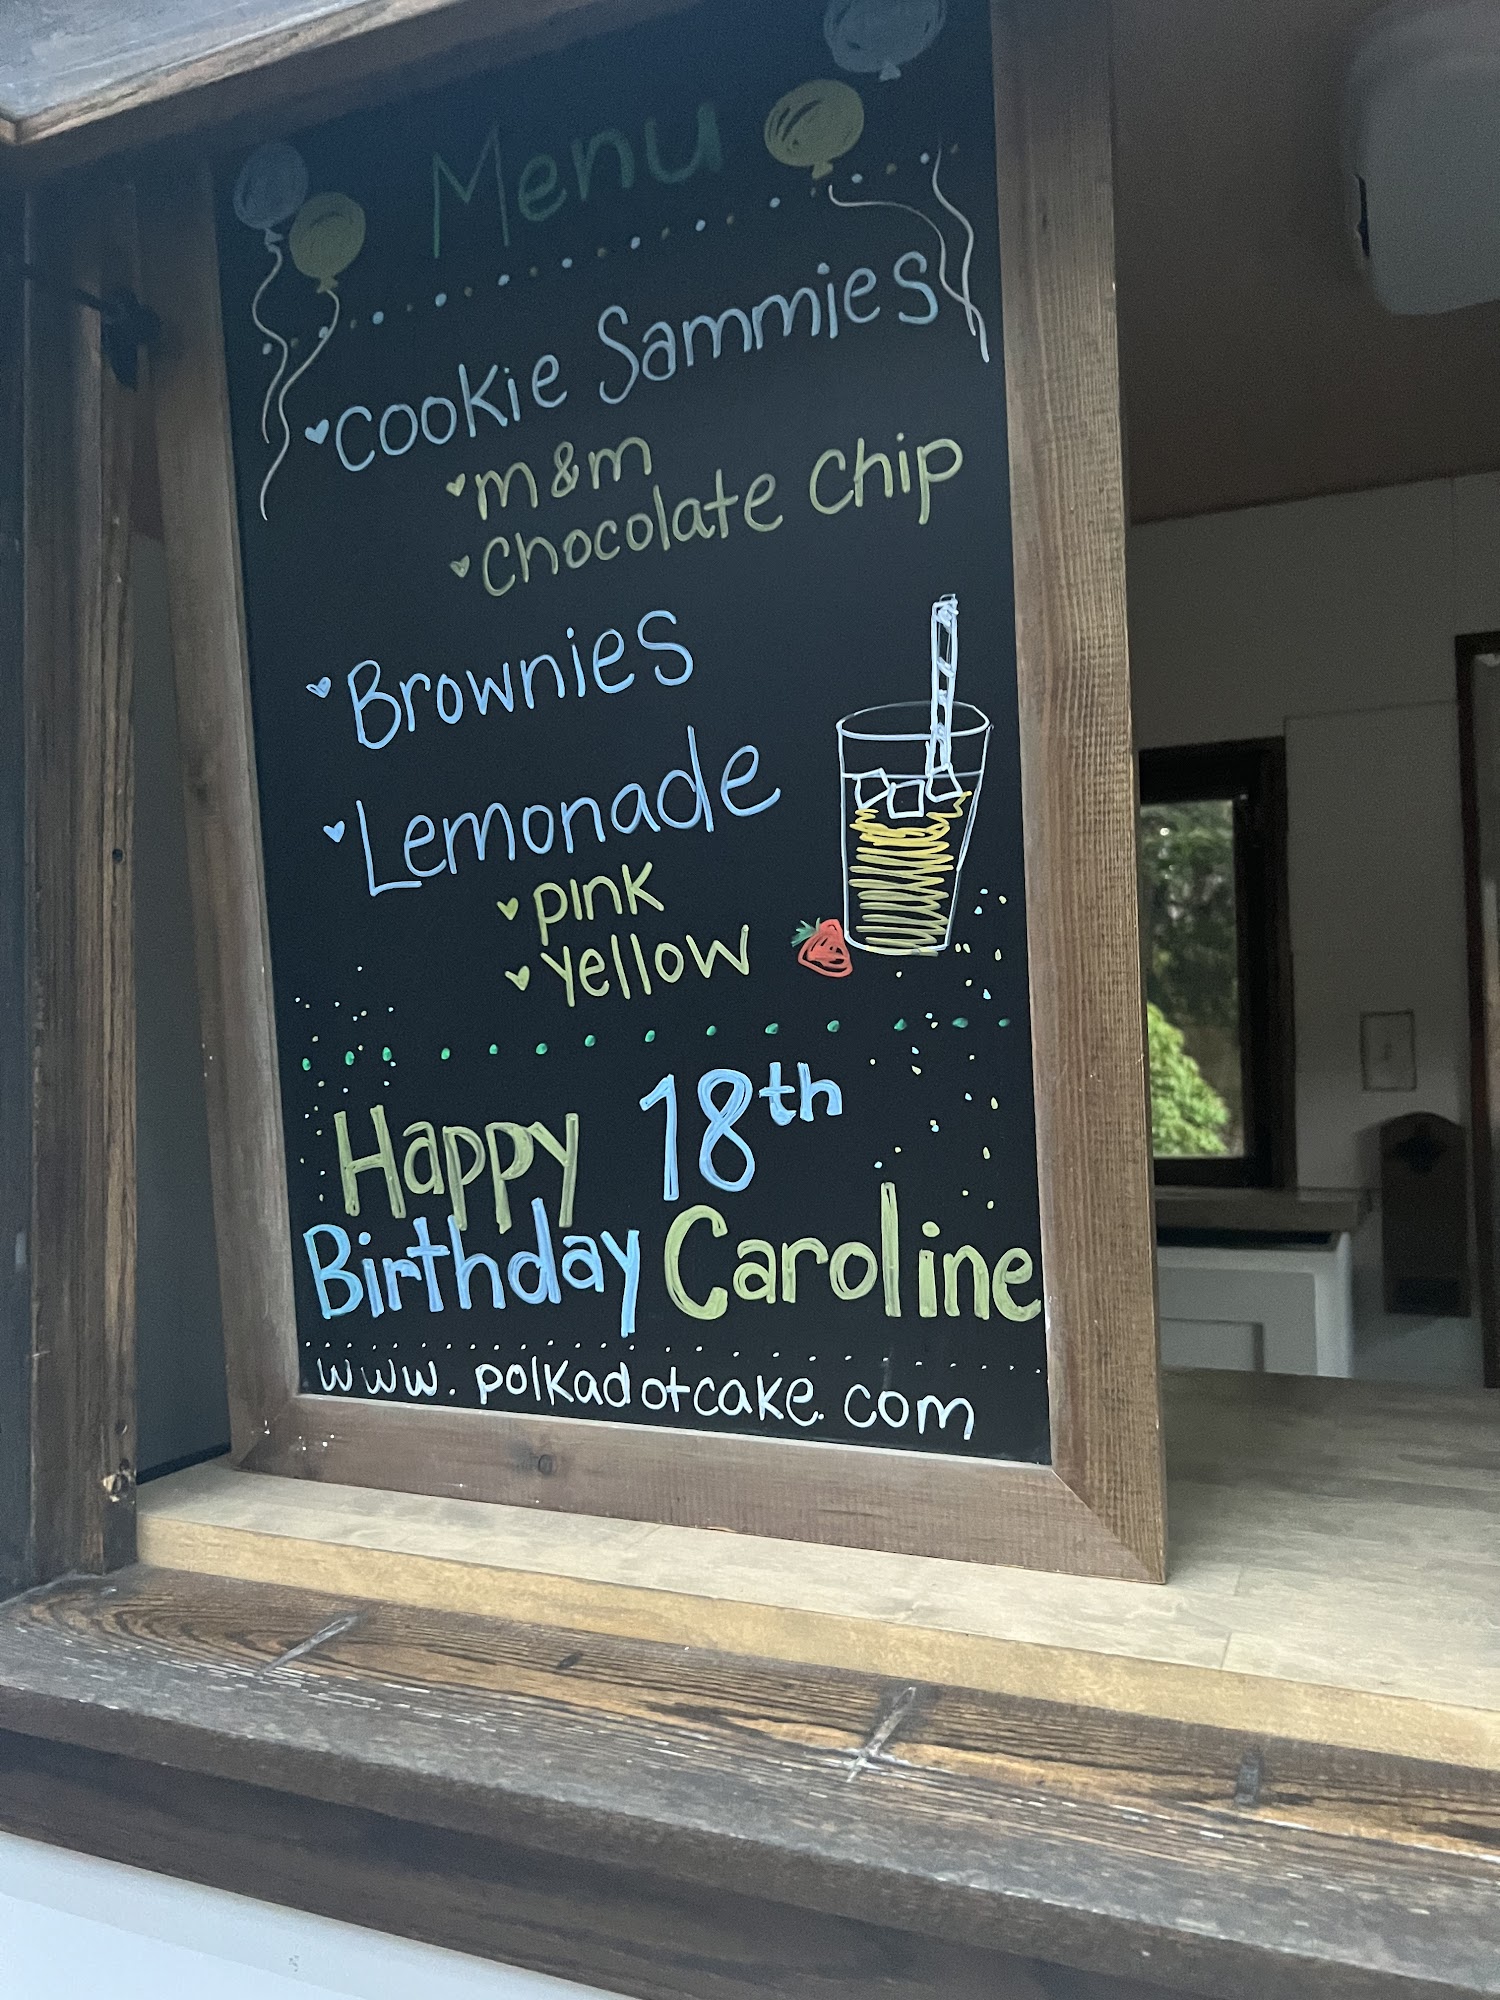 Menu
Cookie Sammies
m&m
Chocolate Chip
Brownies
Lemonade
pink
yellow
Happy 18th
Birthday Caroline
www.polkadotcake.com